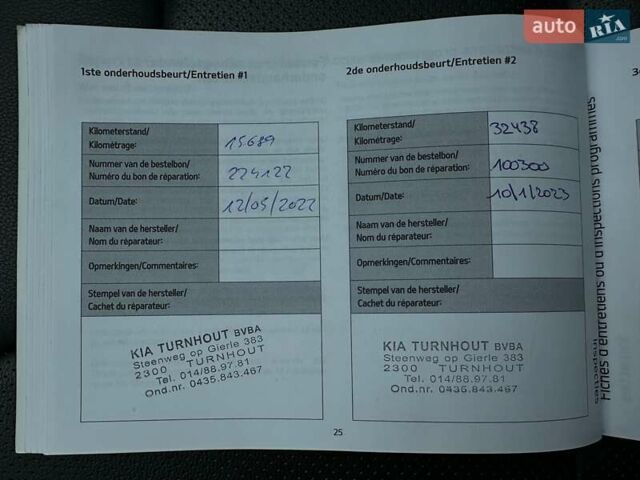 auto RIA.com
1ste onderhoudsbeurt/Entretien #1
Kilometerstand/
Kilométrage:
15689
Nummer van de bestelbon/
Numéro du bon de réparation:
224122
Datum/Date:
12/05/2022
Naam van de hersteller/
Nom du réparateur:
Opmerkingen/Commentaires:
Stempel van de hersteller/
Cachet du réparateur:
KIA TURNHOUT BVBA
Steenweg op Gierle 383
2300 TURNHOUT
Tel. 014/88.97.81
Ond.nr. 0435.843.467
2de onderhoudsbeurt/Entretien #2
Kilometerstand/
Kilométrage:
32438
Nummer van de bestelbon/
Numéro du bon de réparation:
100300
Datum/Date:
10/1/2023
Naam van de hersteller/
Nom du réparateur:
Opmerkingen/Commentaires:
Stempel van de hersteller/
Cachet du réparateur:
KIA TURNHOUT BVBA
Steenweg op Gierle 383
2300 TURNHOUT
Tel. 014/88.97.81
Ond.nr. 0435.843.467
25
Fiches d'entretiens ou d'inspections programmés